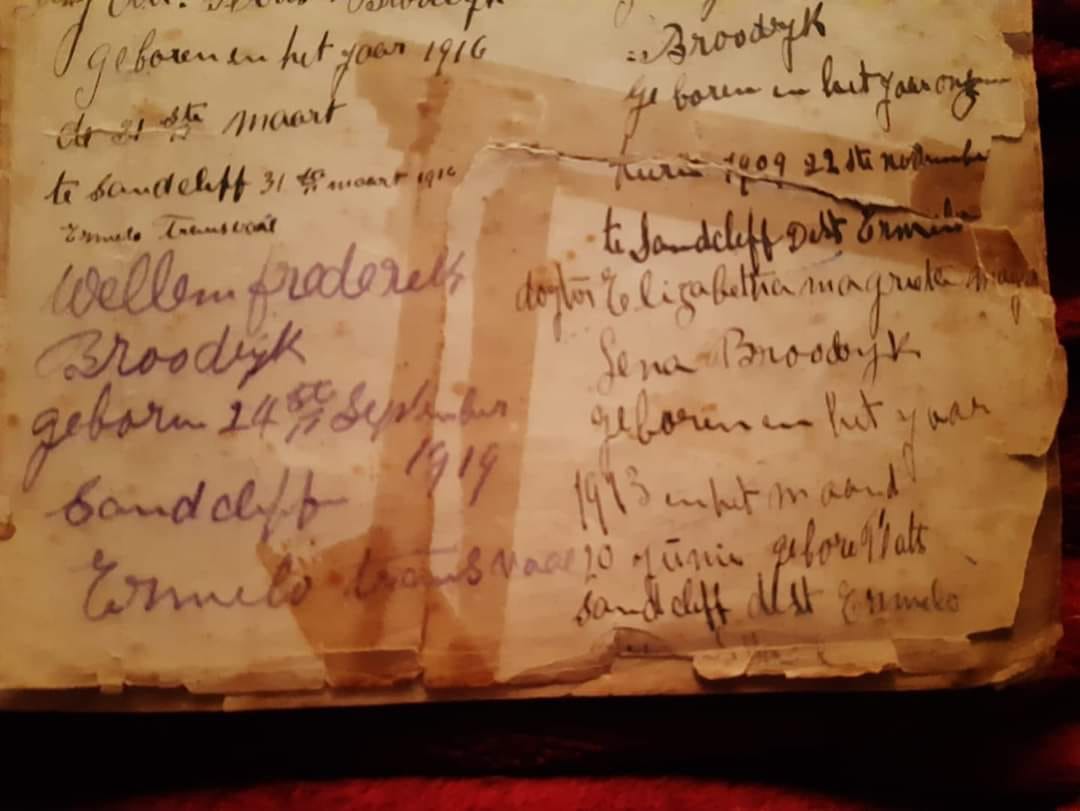 Broodryk
geboren en het yaar 1916
de 31 ste maart
te Sandcliff 31 ste maart 1916
Ermelo Transvaal
Wellem frederek
Broodryk
geboren 24 ste September
1919
Sandcliff
Ermelo transvaal
Broodryk
geboren in het yaar
1909 22 ste november
te Sandcleff Dist Ermelo
Elizabetha magrieta
Sena Broodryk
geboren en het yaar
1913 en het maand
20 Junie gebore Plats
Sandcliff dist Ermelo